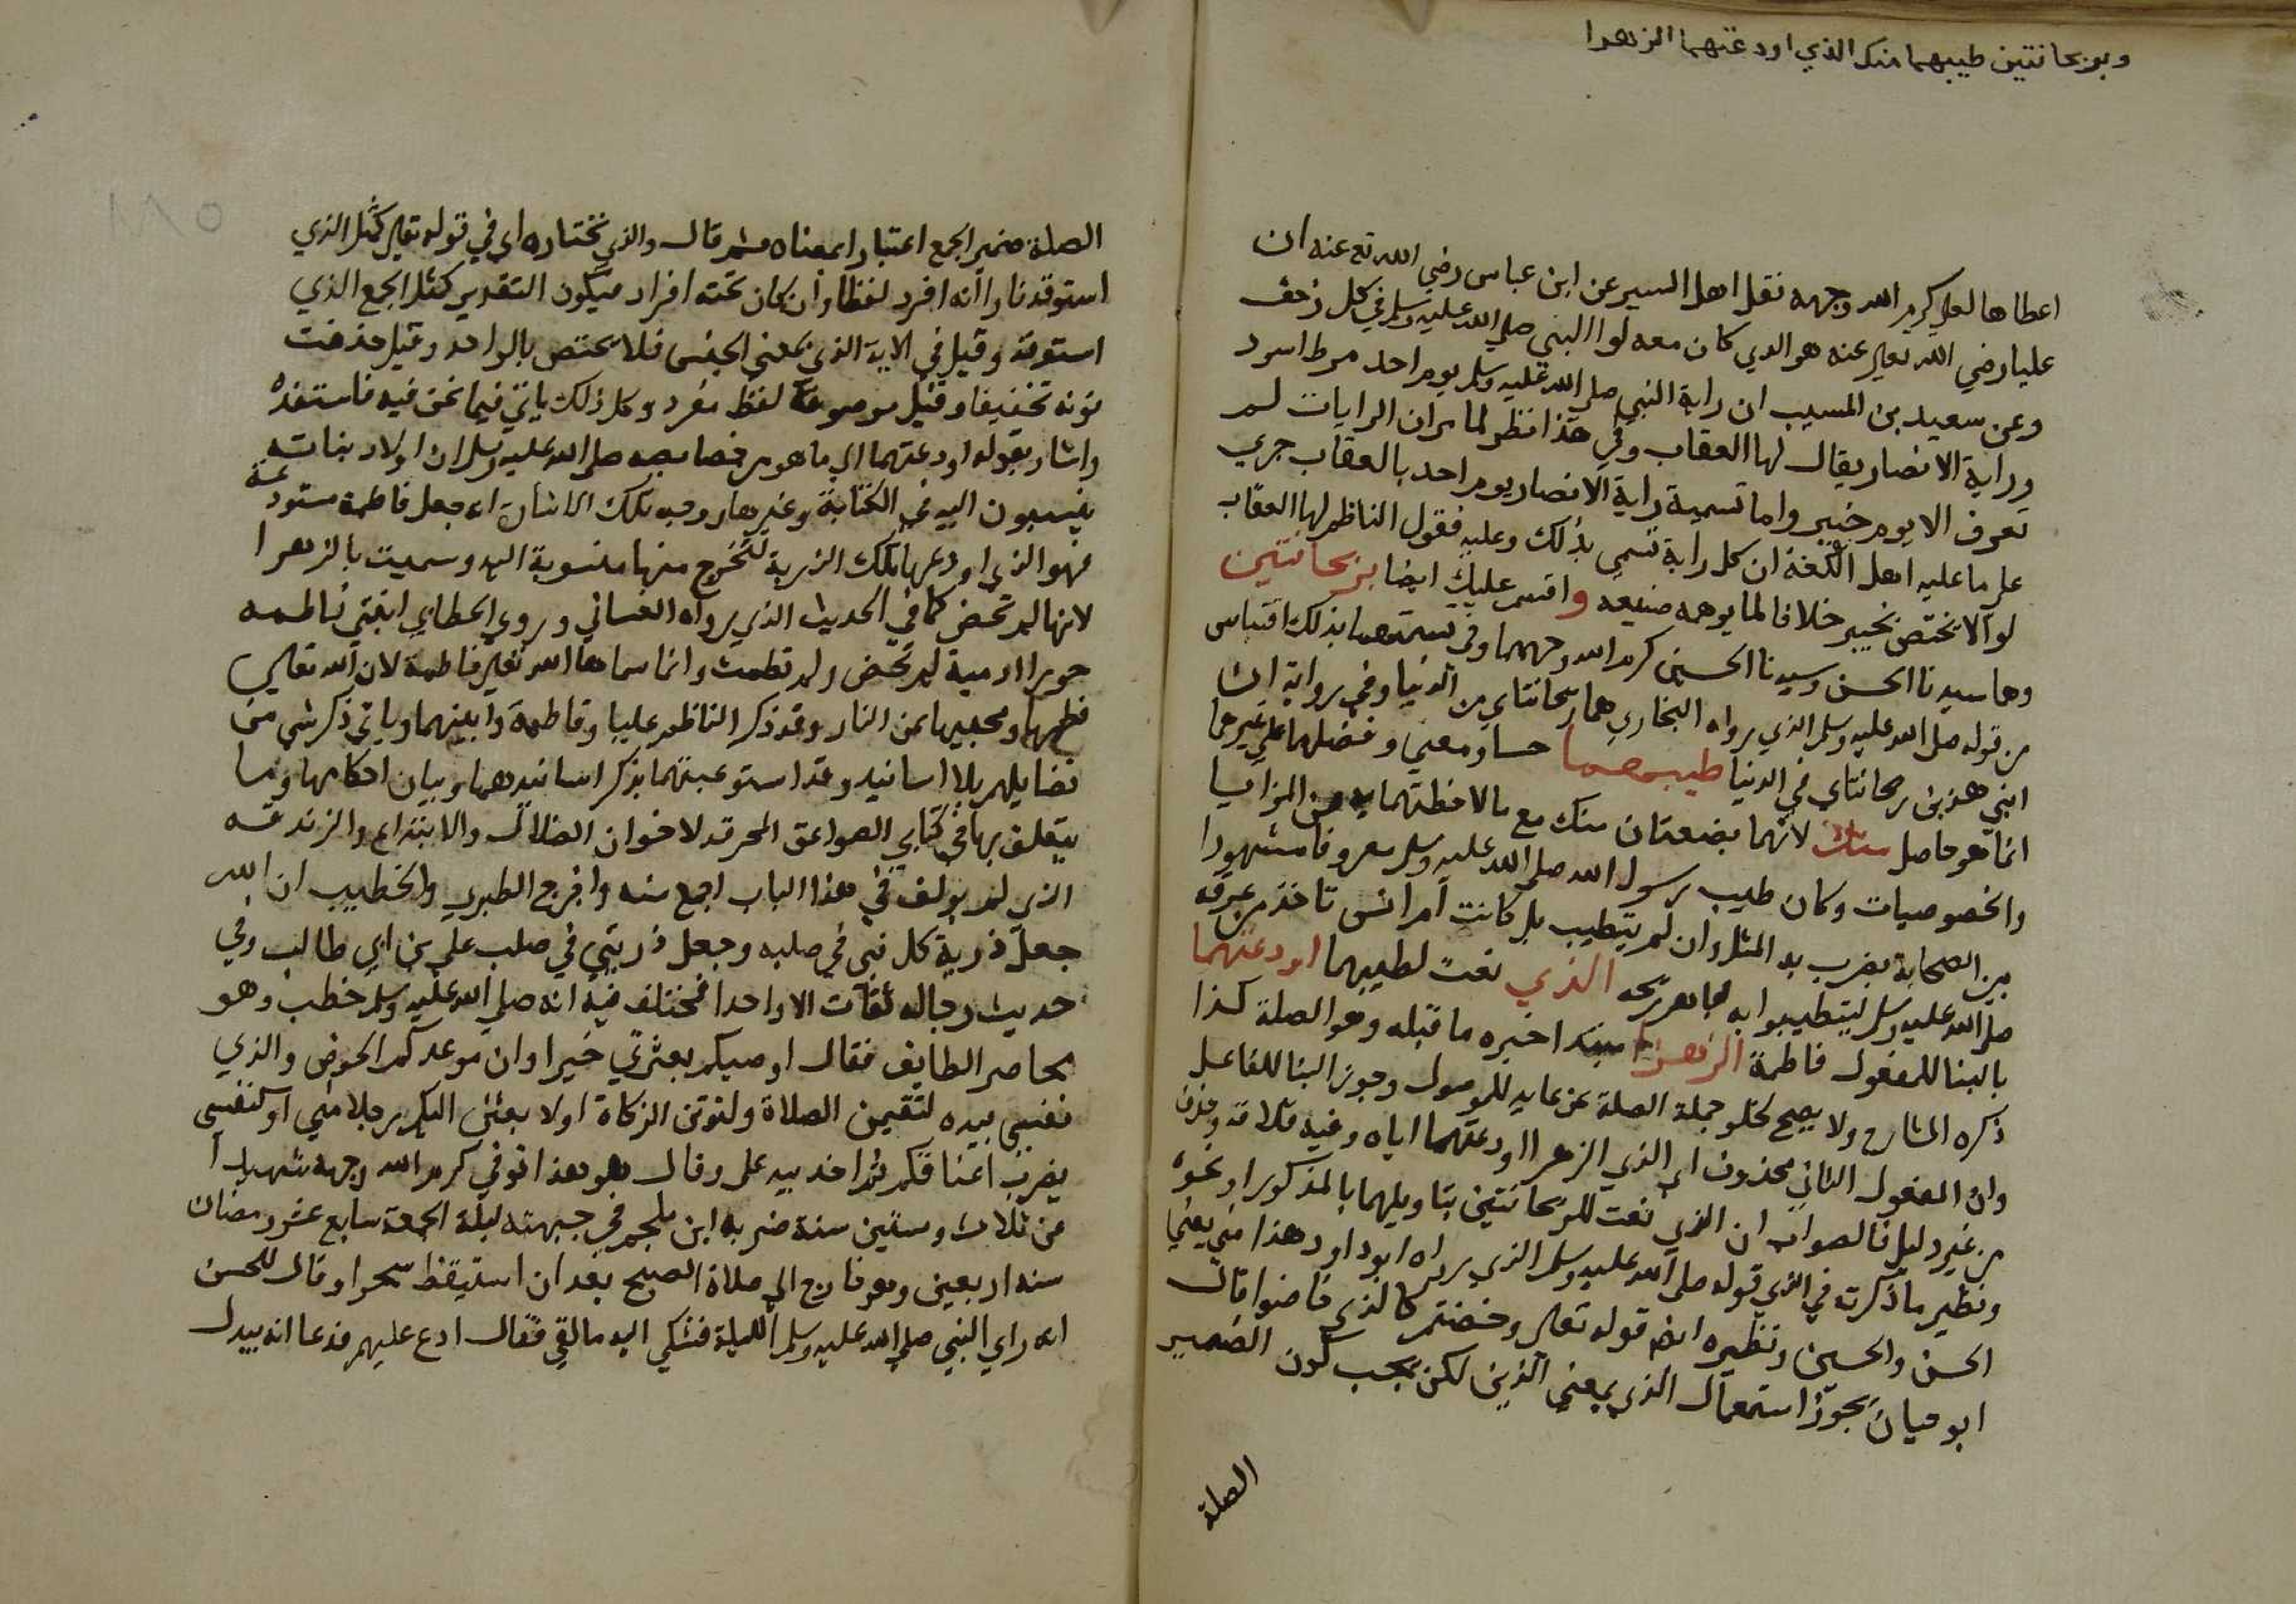 وبريحانتين طيبهما منك الذي اودعتهما الزهرا
اعطاها لعلي كرم الله وجهه نقل اهل السير عن ابن عباس رضي الله تع عنه ان
عليا رضي الله تعالى عنه هو الذي كان معه لوا النبي صلى الله عليه وسلم في كل زحف
وعن سعيد بن المسيب ان راية النبي صلى الله عليه وسلم يوم احد مرط اسود
وراية الانصار يقال لها العقاب وفي هذا نظر لما مر ان الرايات لم
تعرف الا يوم خيبر واما تسمية راية الانصار يوم احد بالعقاب جري
على ما عليه اهل اللغة ان كل راية تسمى بذلك وعليه فقول الناظم لها العقاب
لو الا يختص بخيبر خلافا لما يوهمه صنيعه واقسم عليك ايضا بريحانتين
وهما سيدنا الحسن وسيدنا الحسين كرم الله وجههما وفي تسميتهما بذلك اقتباس
من قوله صلى الله عليه وسلم الذي رواه البخاري هما ريحانتاي من الدنيا وفي رواية ان
ابني هذين ريحانتاي في الدنيا طيبهما حسا ومعنى وفضلهما على غيرهما
انما هو حاصل منك لانهما بضعتان منك مع ما لاحظتهما به من المزايا
والخصوصيات وكان طيب رسول الله صلى الله عليه وسلم معروفا مشهورا
بين الصحابة يضرب به المثل وان لم يتطيب بل كانت ام انس تاخذ من عرقه
صلى الله عليه وسلم ليتطيبوا به الذي نعت لطيبهما اودعتهما
بالبنا للمفعول فاطمة الزهرا مبتدا خبره ما قبله وهو الصلة كذا
ذكره الشارح ولا يصح لخلو جملة الصلة عن عايد للموصول وجوز البنا للفاعل
وان المفعول الثاني محذوف اي الذي الزهرا اودعتهما اياه وفيه قلاقة وحذف
من غير دليل فالصواب ان الذي نعت للريحانتين بتاويلهما بالمذكور او نحوه
ونظير ما ذكرته في الذي قوله صلى الله عليه وسلم الذي رواه ابو داود هذا مني يعني
الحسن والحسين ونظيره ايضا قوله تعالى وخضتم كالذي خاضوا قال
ابو حيان يجوز استعمال الذي بمعنى الذين لكن يجب كون الضمير
الصلة
الصلة ضمير الجمع اعتبارا بمعناه ثم قال والذي نختاره اي في قوله تعالى كمثل الذي
استوقد نارا انه افرد لفظا وان كان تحته افراد فيكون التقدير كمثل الجمع الذي
استوقد وقيل في الاية الذي بمعنى الجنس فلا يختص بالواحد وقيل حذفت
نونه تخفيفا وقيل موصوفه لفظ مفرد وكل ذلك ياتي فيما نحن فيه فاستفده
واشار بقوله اودعتهما الى ما هو من خصايصه صلى الله عليه وسلم ان اولاد بناته
ينسبون اليه في الكتابة وغيرها ووجه تلك الاشارة انه جعل فاطمة مستودعة
فهو الذي اودعها تلك الذرية لتخرج منها منسوبة اليه وسميت بالزهرا
لانها لم تحض كما في الحديث الذي رواه الغساني وروى الخطابي ابنتي فاطمه
حورا ادمية لم تحض ولم تطمث وانما سماها الله تعالى فاطمة لان الله تعالى
فطمها ومحبيها عن النار وقد ذكر الناظم عليا وفاطمة وابنيهما وياتي ذكر شي من
فضايلهم بلا اسانيد وقد استوعبتهما بذكر اسانيدهما وبيان احكامها وما
يتعلق بها في كتابي الصواعق المحرقة لاخوان الضلال والابتداع والزندقه
الذي لم يولف في هذا الباب اجمع منه واخرج الطبري والخطيب ان الله
جعل ذرية كل نبي في صلبه وجعل ذريتي في صلب علي بن ابي طالب وفي
حديث رجاله ثقات الا واحدا فمختلف فيه انه صلى الله عليه وسلم خطب وهو
محاصر الطايف فقال اوصيكم بعترتي خيرا وان موعدكم الحوض والذي
نفسي بيده لتقيمن الصلاة ولتوتن الزكاة او لابعثن اليكم رجلا مني او كنفسي
يضرب اعناقكم ثم اخذ بيد علي وقال هو هذا توفي كرم الله وجهه شهيدا
عن ثلاث وستين سنة ضربه ابن ملجم في جبهته ليلة الجمعة سابع عشر رمضان
سنه اربعين وهو خارج الى صلاة الصبح بعد ان استيقظ سحرا وقال للحسن
انه راي النبي صلى الله عليه وسلم الليلة فشكى اليه ما لقي فقال ادع عليهم فدعا انه يبدل